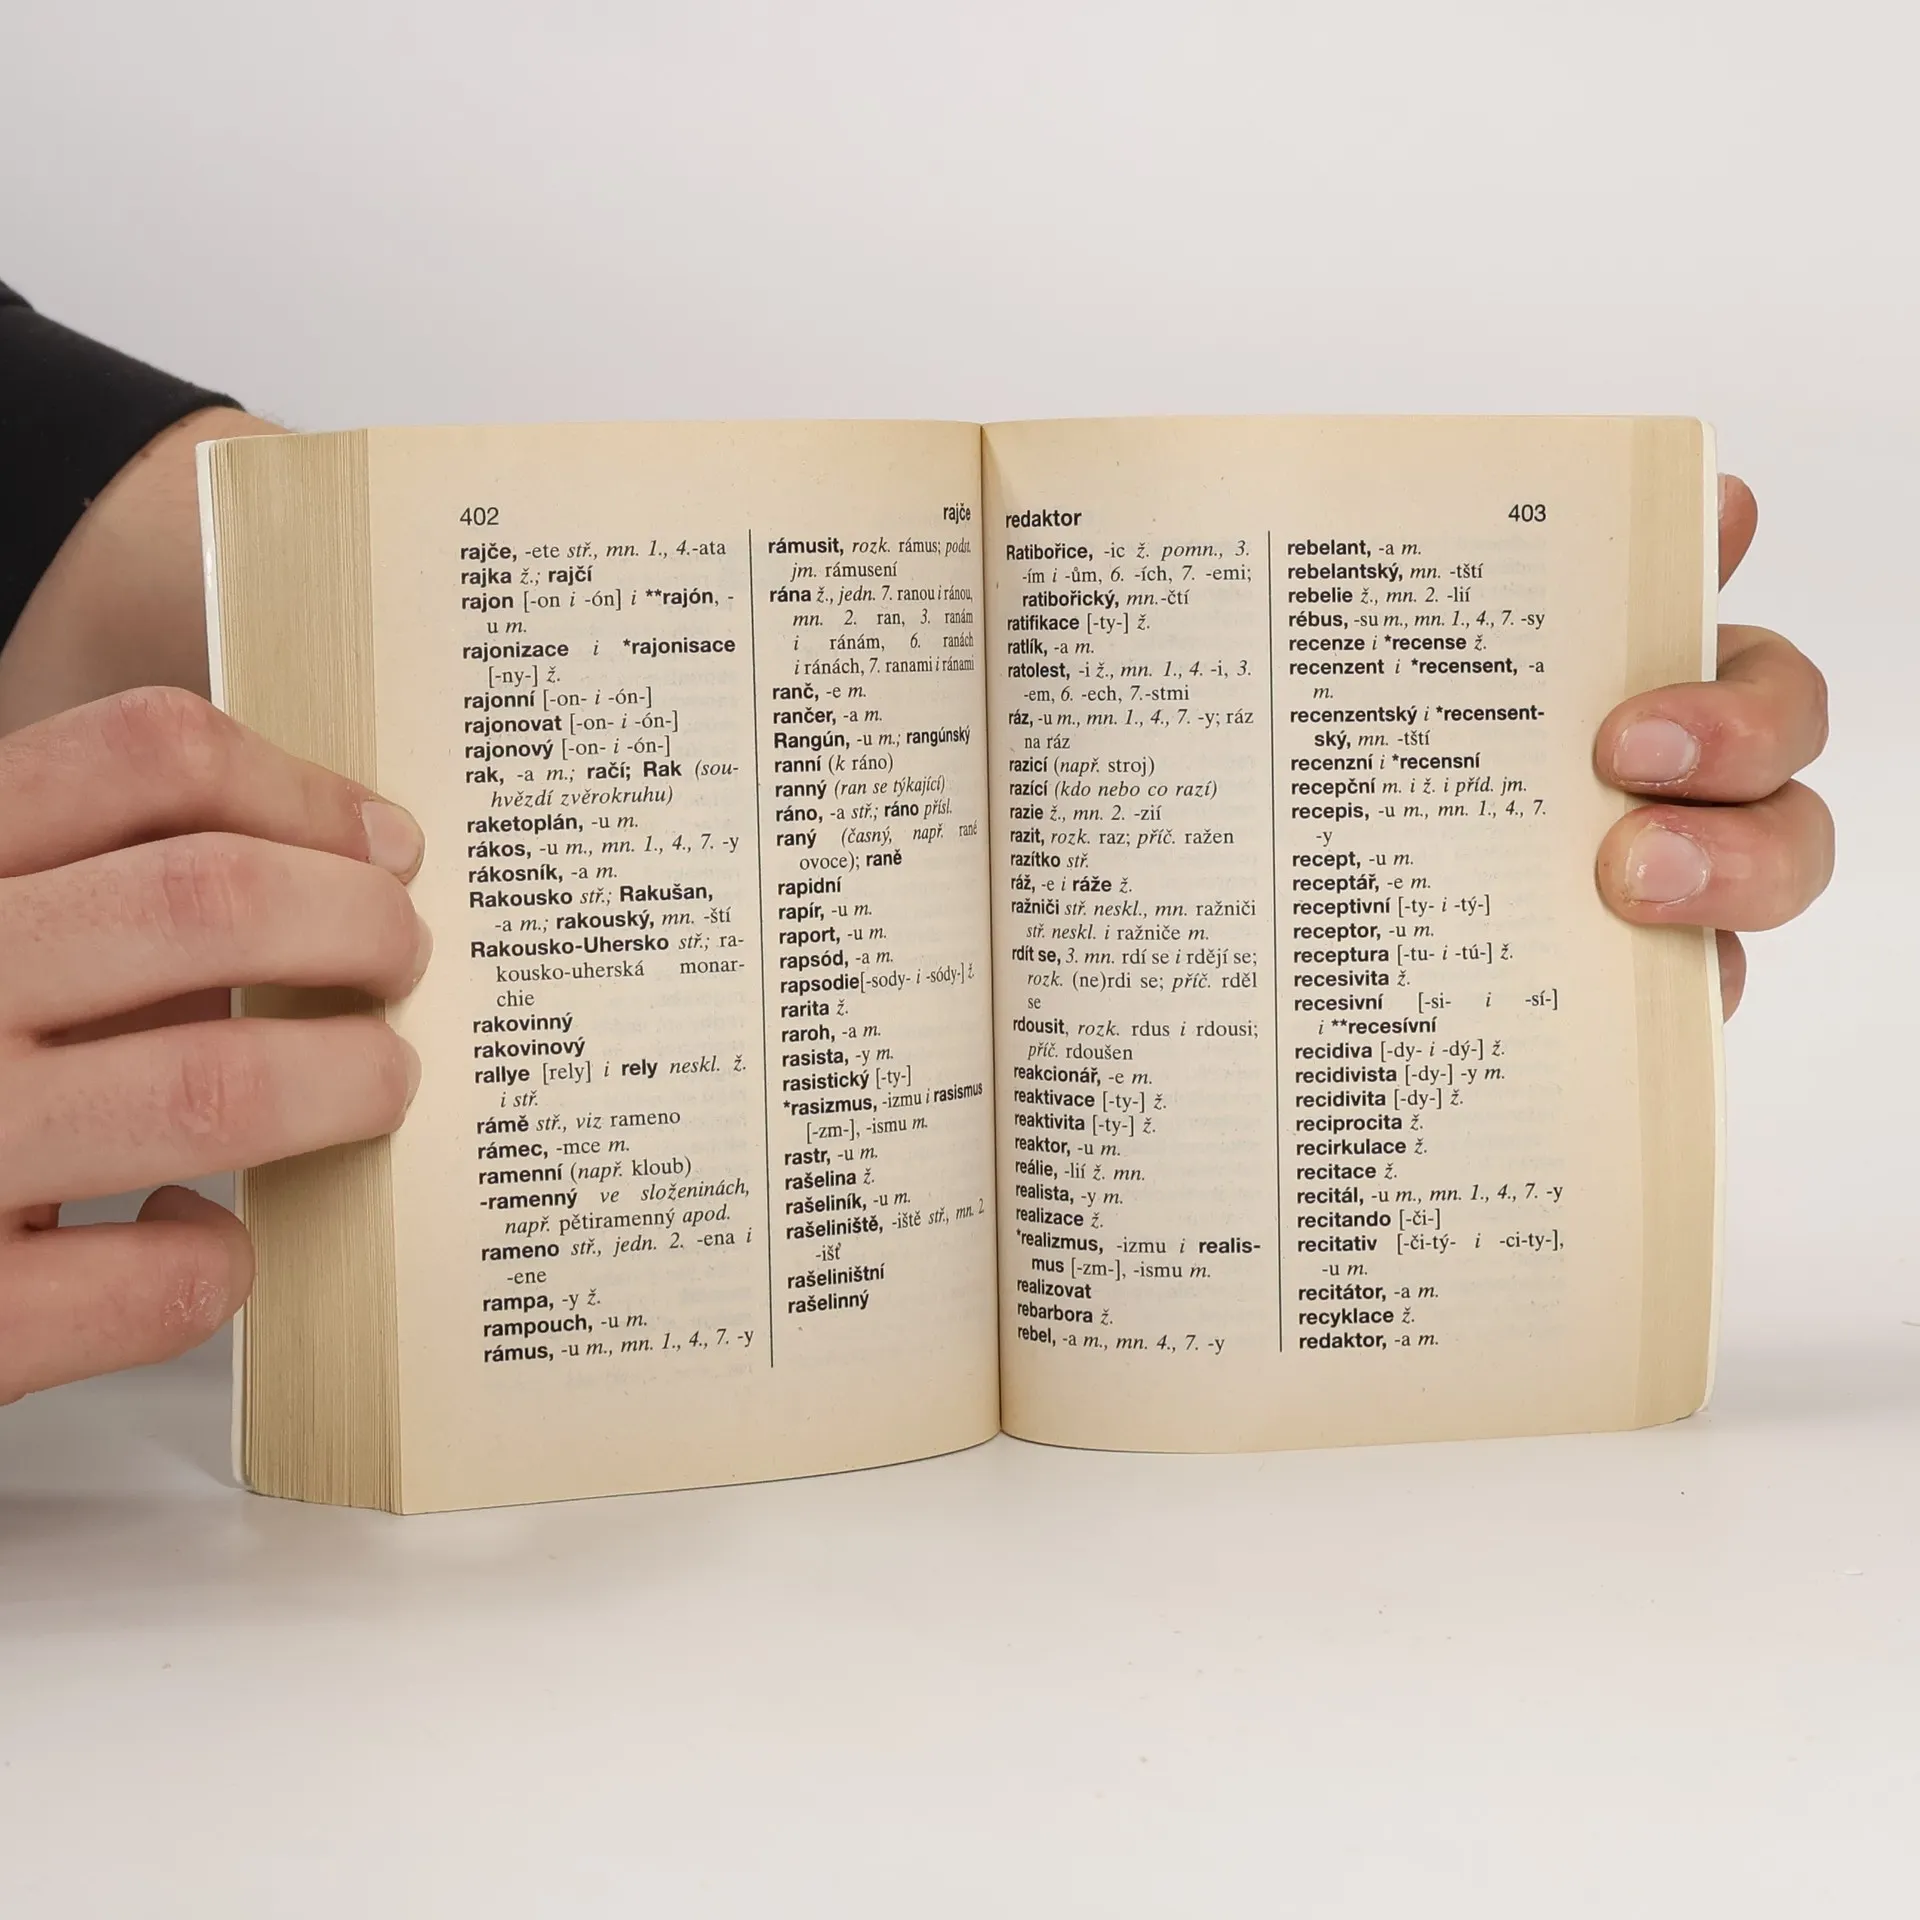 402
rajče
rajče, -ete stř., mn. 1., 4.-ata
rajka ž.; rajčí
rajon [-on i -ón] i **rajón, -
u m.
rajonizace i *rajonisace
[-ny-] ž.
rajonní [-on- i -ón-]
rajonovat [-on- i -ón-]
rajonový [-on- i -ón-]
rak, -a m.; račí; Rak (sou-
hvězdí zvěrokruhu)
raketoplán, -u m.
rákos, -u m., mn. 1., 4., 7. -y
rákosník, -a m.
Rakousko stř.; Rakušan,
-a m.; rakouský, mn. -ští
Rakousko-Uhersko stř.; ra-
kousko-uherská monar-
chie
rakovinný
rakovinový
rallye [rely] i rely neskl. ž.
i stř.
rámě stř., viz rameno
rámec, -mce m.
ramenní (např. kloub)
-ramenný ve složeninách,
např. pětiramenný apod.
rameno stř., jedn. 2. -ena i
-ene
rampa, -y ž.
rampouch, -u m.
rámus, -u m., mn. 1., 4., 7. -y
rámusit, rozk. rámus; podst.
jm. rámusení
rána ž., jedn. 7. ranou i ránou,
mn. 2. ran, 3. ranám
i ránám, 6. ranách
i ránách, 7. ranami i ránami
ranč, -e m.
rančer, -a m.
Rangún, -u m.; rangúnský
ranní (k ráno)
ranný (ran se týkající)
ráno, -a stř.; ráno přísl.
raný (časný, např. rané
ovoce); raně
rapidní
rapír, -u m.
raport, -u m.
rapsód, -a m.
rapsodie[-sody- i -sódy-] ž.
rarita ž.
raroh, -a m.
rasista, -y m.
rasistický [-ty-]
*rasizmus, -izmu i rasismus
[-zm-], -ismu m.
rastr, -u m.
rašelina ž.
rašeliník, -u m.
rašeliniště, -iště stř., mn. 2
-išť
rašeliništní
rašelinný
redaktor
403
Ratibořice, -ic ž. pomn., 3.
-ím i -ům, 6. -ích, 7. -emi;
ratibořický, mn.-čtí
ratifikace [-ty-] ž.
ratlík, -a m.
ratolest, -i ž., mn. 1., 4. -i, 3.
-em, 6. -ech, 7.-stmi
ráz, -u m., mn. 1., 4., 7. -y; ráz
na ráz
razicí (např. stroj)
razící (kdo nebo co razí)
razie ž., mn. 2. -zií
razit, rozk. raz; příč. ražen
razítko stř.
ráž, -e i ráže ž.
ražniči stř. neskl., mn. ražniči
stř. neskl. i ražniče m.
rdít se, 3. mn. rdí se i rdějí se;
rozk. (ne)rdi se; příč. rděl
se
rdousit, rozk. rdus i rdousi;
příč. rdoušen
reakcionář, -e m.
reaktivace [-ty-] ž.
reaktivita [-ty-] ž.
reaktor, -u m.
reálie, -lií ž. mn.
realista, -y m.
realizace ž.
*realizmus, -izmu i realis-
mus [-zm-], -ismu m.
realizovat
rebarbora ž.
rebel, -a m., mn. 4., 7. -y
rebelant, -a m.
rebelantský, mn. -tští
rebelie ž., mn. 2. -lií
rébus, -su m., mn. 1., 4., 7. -sy
recenze i *recense ž.
recenzent i *recensent, -a
m.
recenzentský i *recensent-
ský, mn. -tští
recenzní i *recensní
recepční m. i ž. i příd. jm.
recepis, -u m., mn. 1., 4., 7.
-y
recept, -u m.
receptář, -e m.
receptivní [-ty- i -tý-]
receptor, -u m.
receptura [-tu- i -tú-] ž.
recesivita ž.
recesivní [-si- i -sí-]
i **recesívní
recidiva [-dy- i -dý-] ž.
recidivista [-dy-] -y m.
recidivita [-dy-] ž.
reciprocita ž.
recirkulace ž.
recitace ž.
recitál, -u m., mn. 1., 4., 7. -y
recitando [-či-]
recitativ [-či-tý- i -ci-ty-],
-u m.
recitátor, -a m.
recyklace ž.
redaktor, -a m.